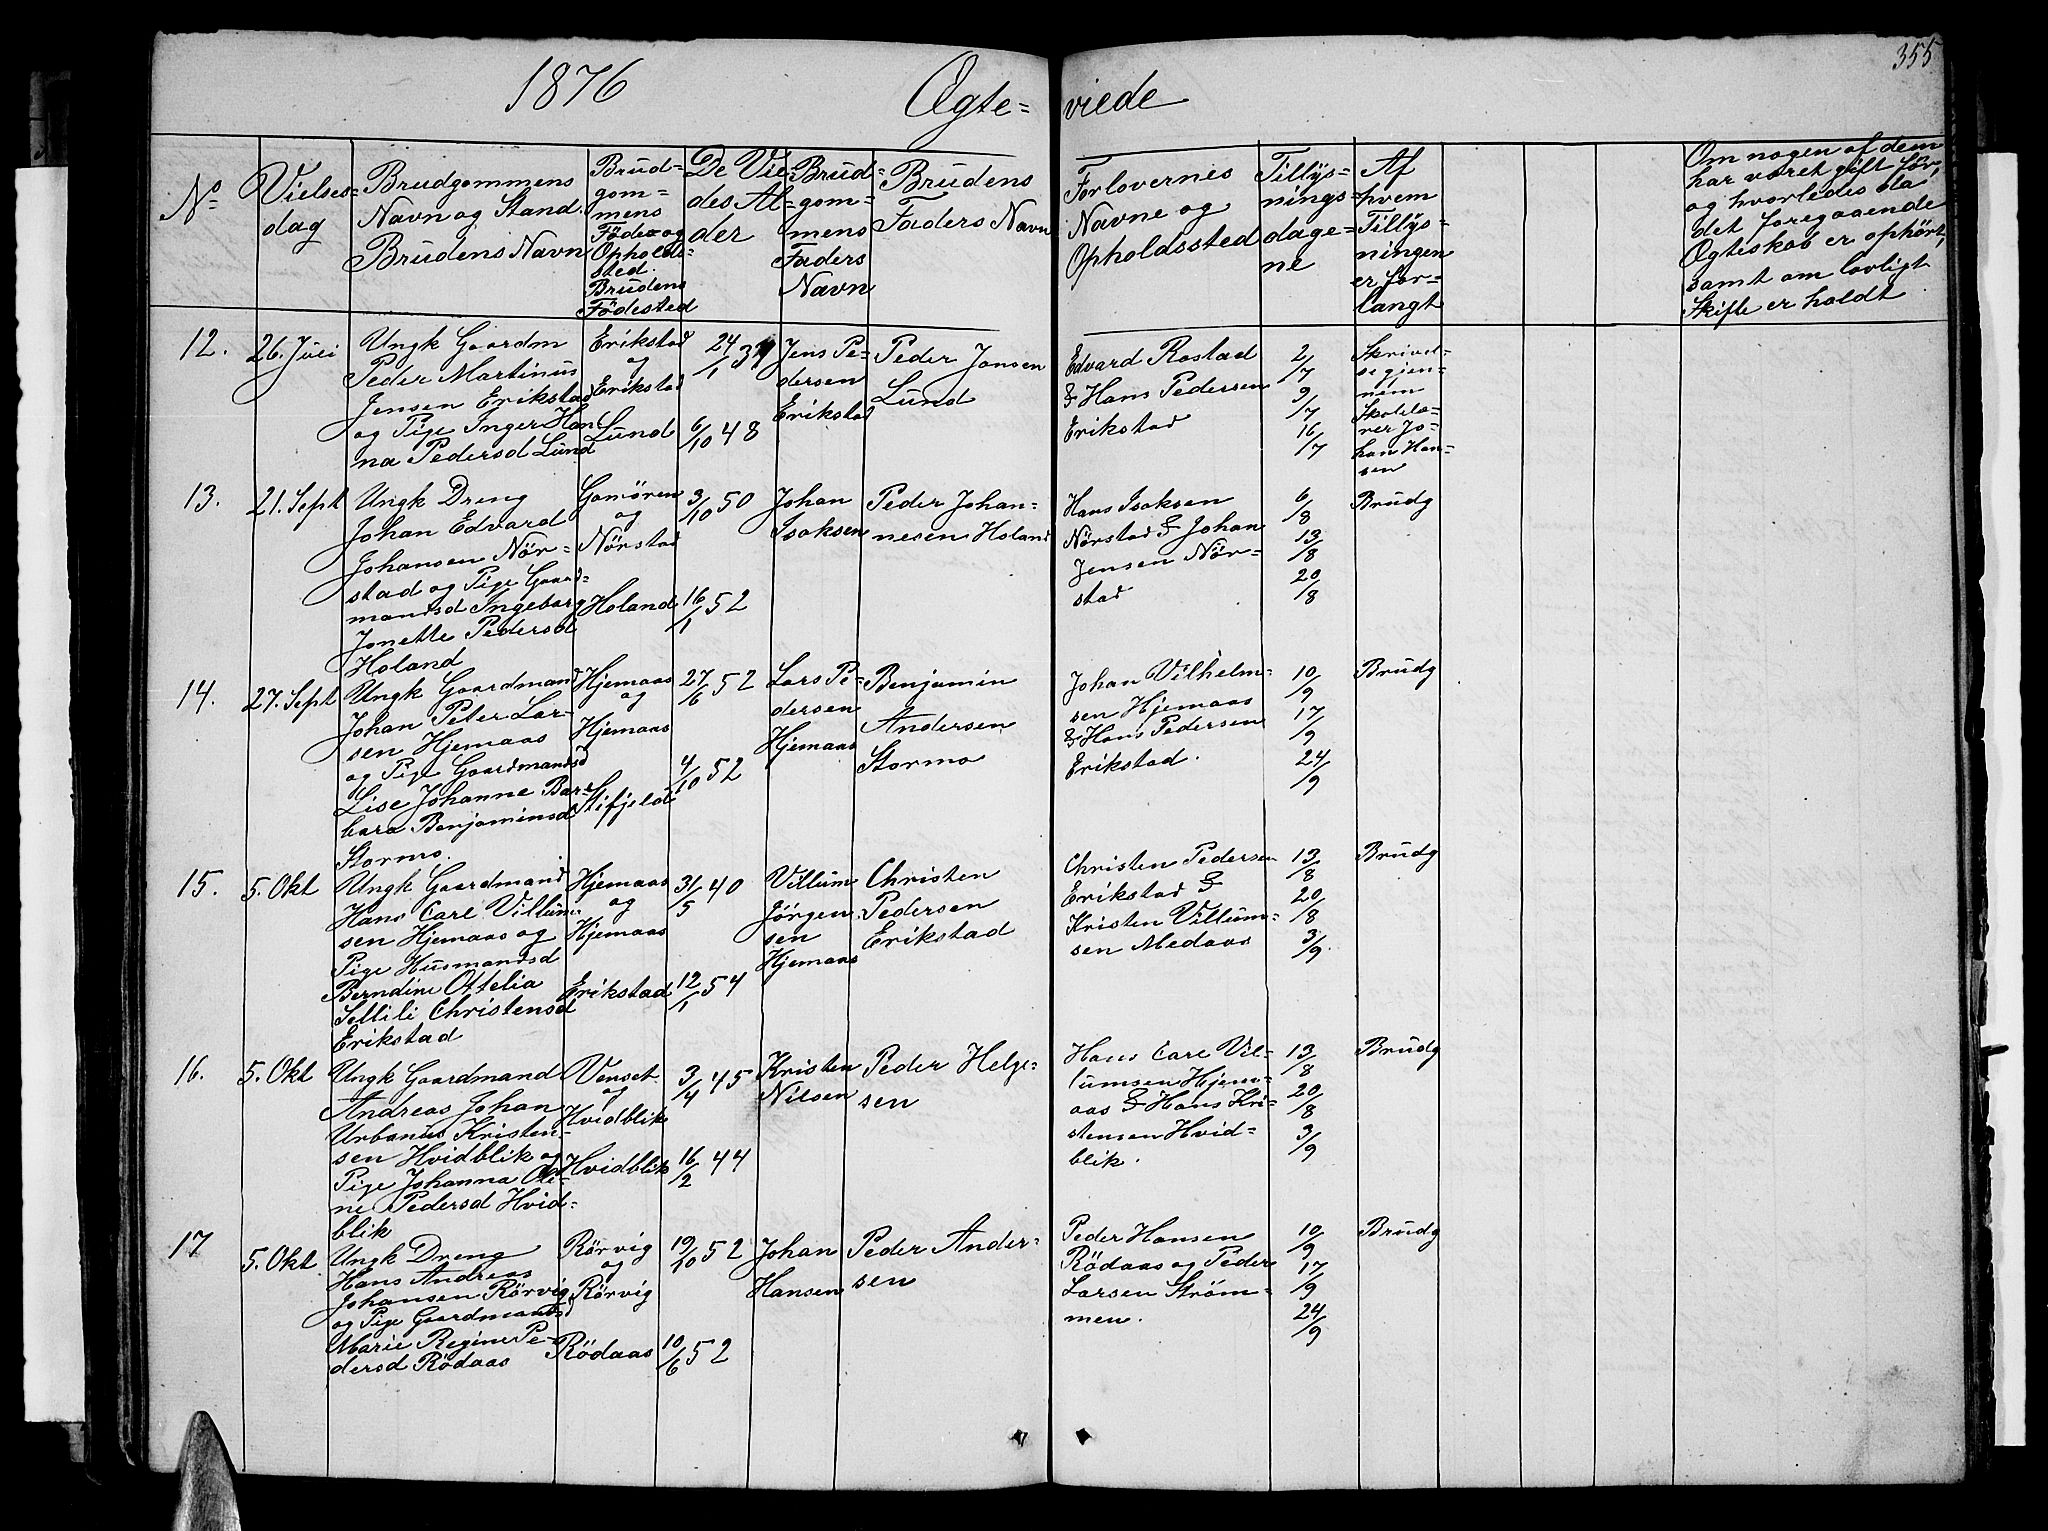 1876
Ægte=
viede
355
No
Vielses=
dag
Brudgommens
Navn og Stand.
Brudens Navn
Brud=
gom=
mens
Föde og
Opholds=
sted.
Brudens
Födested
De Vie
des Al=
der
Brud=
gom=
mens
Faders
Navn
Brudens
Faders Navn
Forlovernes
Navne og
Opholdssted
Tillys=
nings=
dage=
ne
Af
hvem
Tillys=
ningen
er for=
langt
Om nogen af dem
har været gift för,
og hvorledes da
det foregaaende
Ægteskab er ophört,
samt om lovligt
Skifte er holdt
12.
26. Juli
Ungk Gaardm
Peder Martinus
Jensen Erikstad
og Pige Inger Han
na Pedersd Lund
Erikstad
og
Erikstad
Lund
24/1
6/10 48
Jens Pe=
dersen
Erikstad
Peder Jonsen
Lund
Edvard Rostad
& Hans Pedersen
Erikstad
2/7
9/7
16/7
Skrivel=
se gjen=
nem
Skolelæ=
rer Jo=
han Han=
sen
13.
21. Sept
Ungk Dreng
Johan Edvard
Johansen Nör=
stad og Pige Gaard=
mandsd Ingeborg
Jonette Pedersd
Holand
Gamören
og
Nörstad
Holand
3/10 50
16/1 52
Johan
Isaksen
Peder Johan=
nesen Holand
Hans Isaksen
Nörstad & Johan
Jensen Nör=
stad
6/8
13/8
20/8
Brudg
14.
27. Sept
Ungk Gaardmand
Johan Peter Lar=
sen Hjemaas
og Pige Gaardmandsd
Lise Johanne Bar=
bara Benjaminsd
Stormo.
Hjemaas
og
Hjemaas
Stifjeld
27/6 52
4/10 52
Lars Pe=
dersen
Hjemaas
Benjamin
Andersen
Stormo
Johan Vilhelm=
sen Hjemaas
& Hans Pedersen
Erikstad.
10/9
17/9
24/9
Brudg
15.
5. Okt
Ungk Gaardmand
Hans Carl Villum=
sen Hjemaas og
Pige Husmandsd
Berndine Ottelia
Sellili Christensd
Erikstad
Hjemaas
og
Hjemaas
Erikstad
31/5 40
12/1 54
Villum
Jörgen
sen
Hjemaas
Christen
Pedersen
Erikstad
Christen Pedersen
Erikstad &
Kristen Villum=
sen Medaas
13/8
20/8
3/9.
Brudg
16.
5. Okt
Ungk Gaardmand
Andreas Johan
Urbanus Kristen=
sen Hvidblik og
Pige Johanna Oli=
ne Pedersd Hvid=
blik
Venset
og
Hvidblik
Hvidblik
3/4 45
16/2 44
Kristen
Nilsen
Peder Helge=
sen
Hans Carl Vil=
lumsen Hjem=
aas & Hans Kri=
stensen Hvid=
blik.
13/8
20/8
3/9
Brudg
17
5. Okt
Ungk Dreng
Hans Andreas
Johansen Rörvig
og Pige Gaardmandsd
Marie Regine Pe=
dersd Rödaas
Rörvig
og
Rörvig
Rödaas
19/10 52
10/6 52
Johan
Hansen
Peder Ander=
sen
Peder Hansen
Rödaas og Peder
Larsen Ström=
men.
10/9
17/9
24/9
Brudg